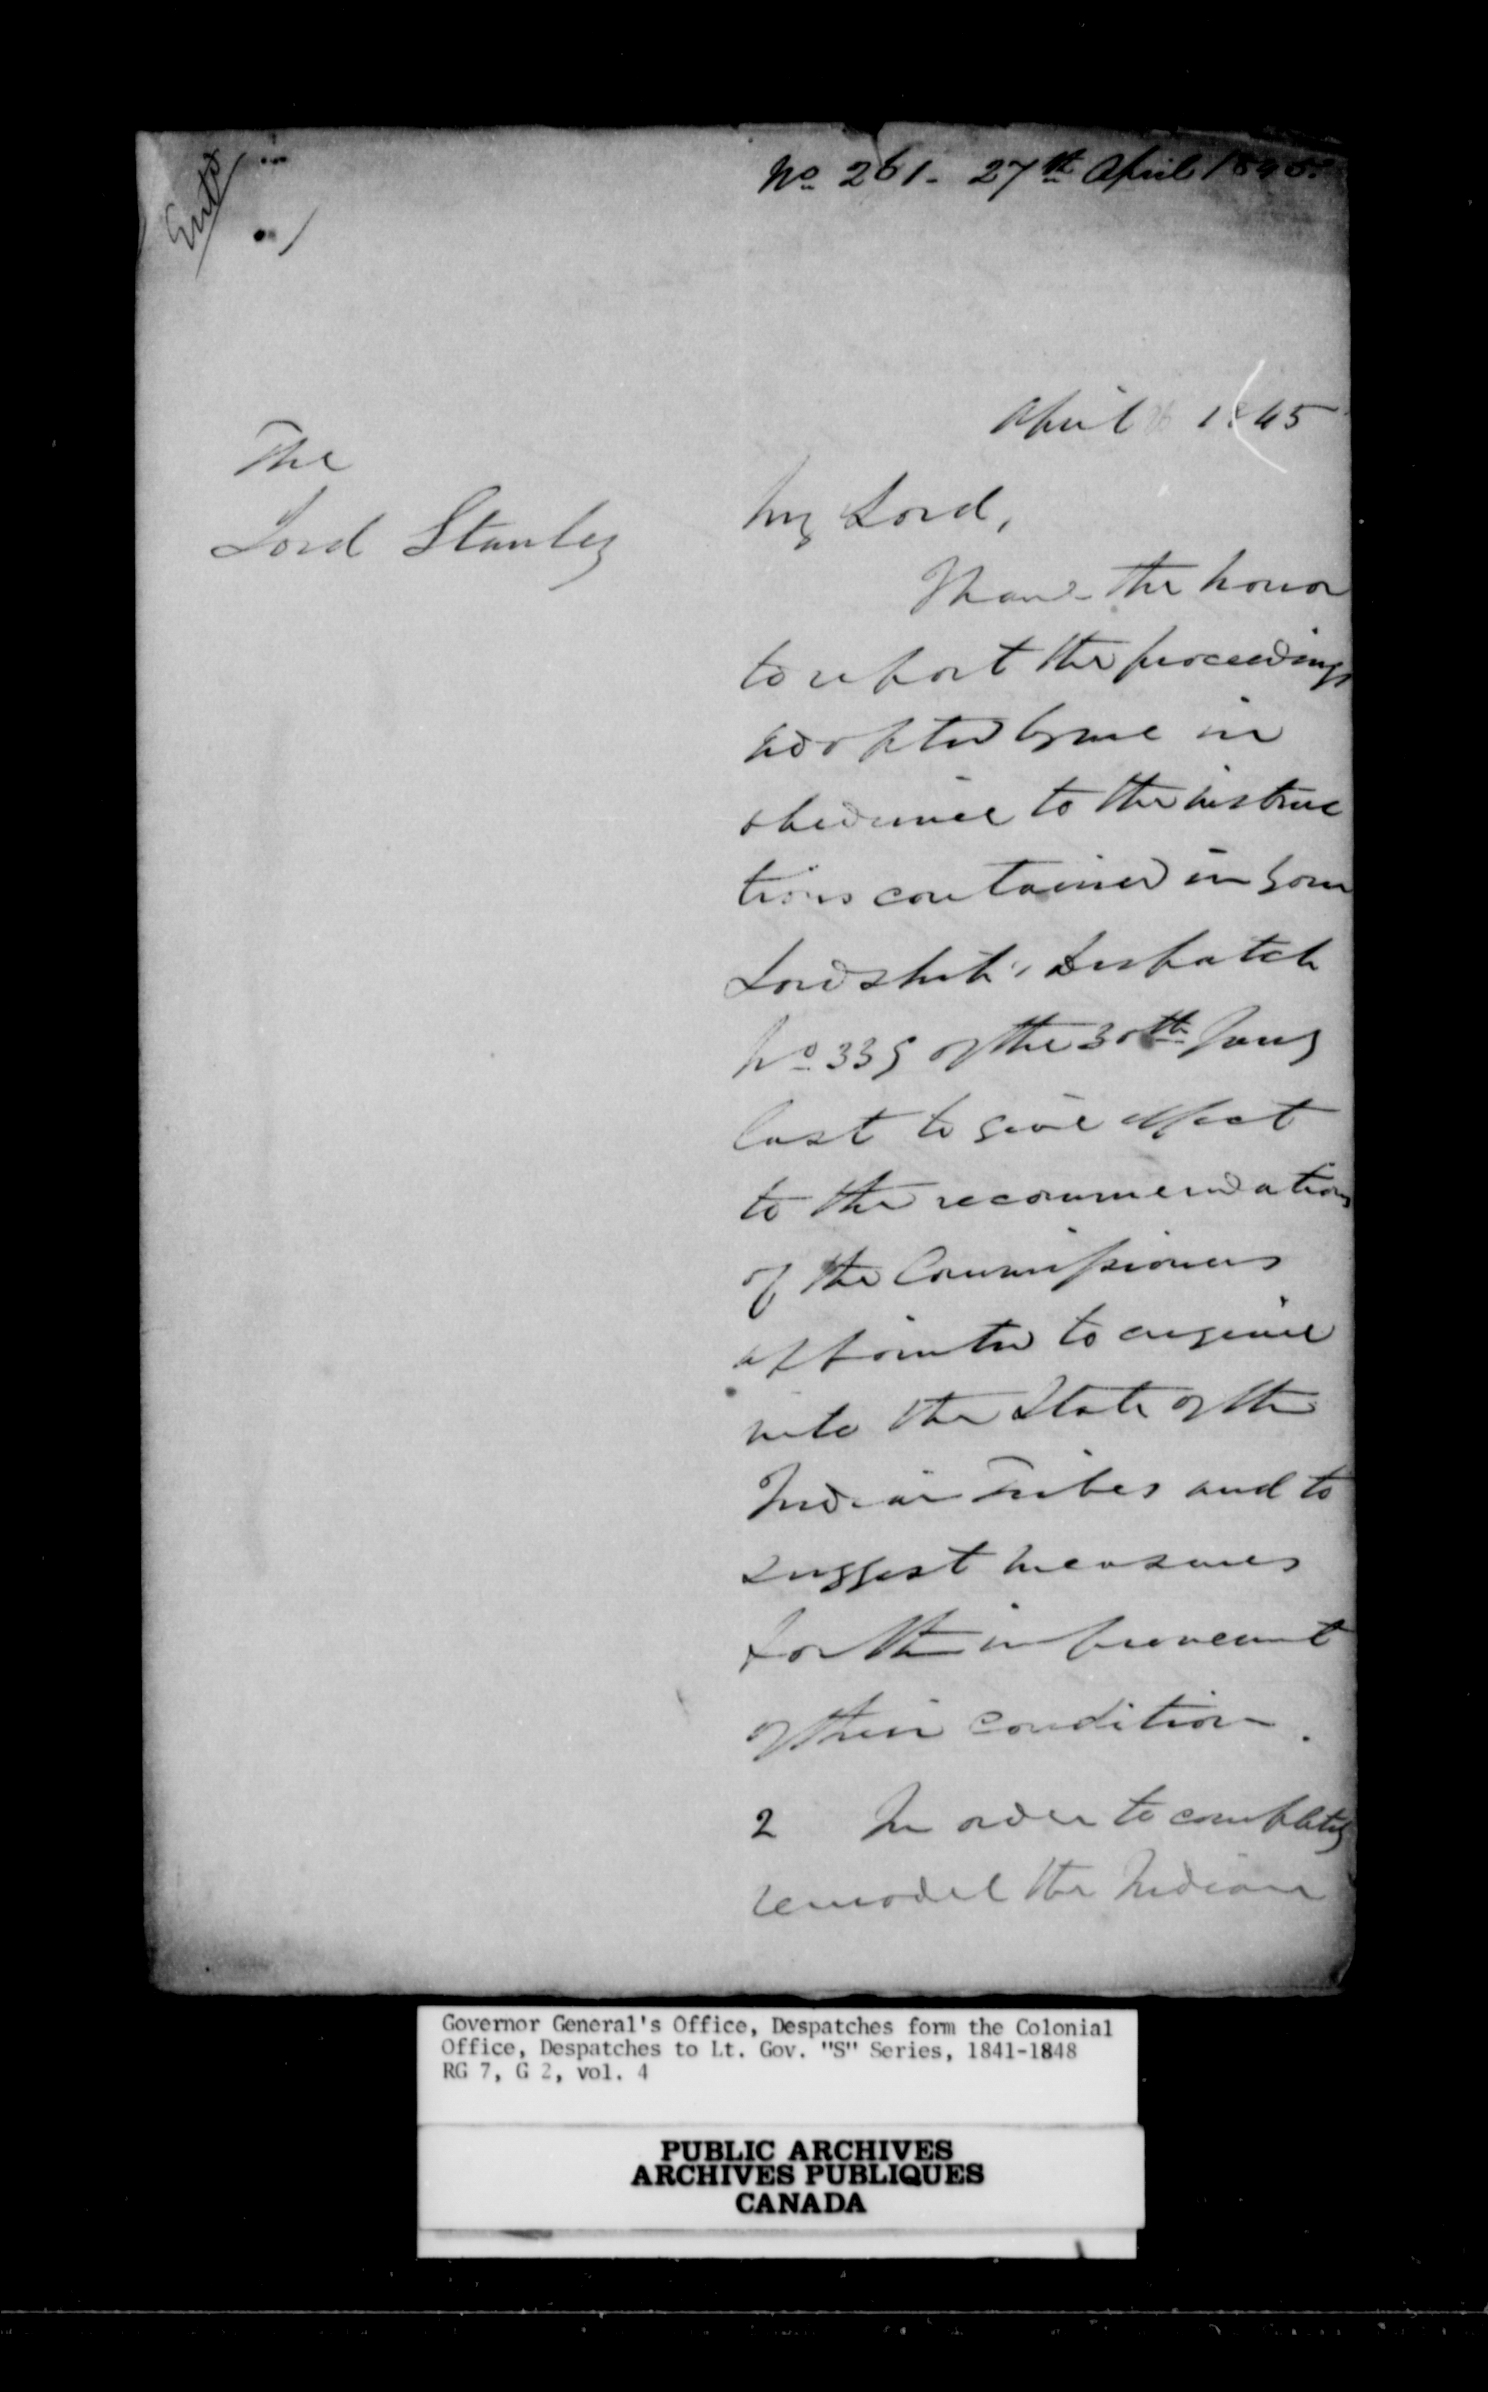 Entd
No 261. 27th April 1845.
April 1845
The
Lord Stanley
My Lord,
I have the honor
to report the proceedings
adopted by me in
obedience to the instruc
tions contained in your
Lordship's Despatch
No 335 of the 30th Jany
last to give effect
to the recommendations
of the Commissioners
appointed to enquire
into the State of the
Indian Tribes and to
suggest measures
for the improvement
of their condition.
2 In order to completely
remodel the Indian
Governor General's Office, Despatches form the Colonial
Office, Despatches to Lt. Gov. "S" Series, 1841-1848
RG 7, G 2, vol. 4
PUBLIC ARCHIVES
ARCHIVES PUBLIQUES
CANADA